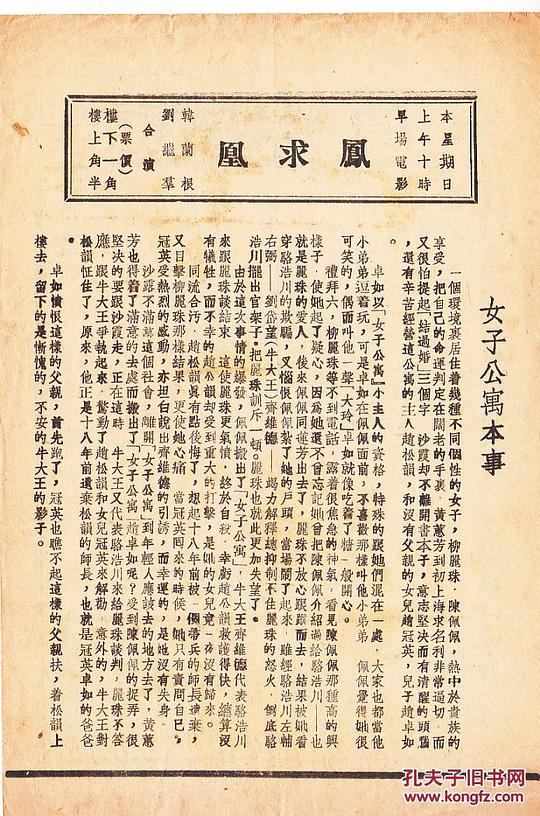 本星期日
上午十時
早場電影
鳳求凰
韓蘭根
劉繼羣
合演
(票價)
樓下一角
樓上角半
女子公寓本事
一個環境裏居住着幾種不同個性的女子，柳麗珠，陳佩佩，熱中於貴族的
享受，把自己的命運判定在闊老的手裏，黃蕙芳到初上海求名利非常逼切，而
又很怕提起「結過婚」三個字　沙霞却不離開書本子，意志堅决而有清醒的頭腦
，還有辛苦經營這公寓的主人趙松韻，和沒有父親的女兒趙冠英，兒子趙卓如
。
卓如以「女子公寓」小主人的資格，特殊的跟她們混在一處，大家也都當他
小弟弟逗着玩，可是卓如在佩佩面前，不喜歡那樣叫他小弟弟　佩佩覺得她很
可笑的，偶而叫他一聲「大玲」卓如就像吃着了糖一般開心。
禮拜六，柳麗珠等不到電話，露着很焦急的神氣，看見陳佩佩那種高的興
樣子，使她起了疑心，因為她還不曾忘記她曾把陳佩佩介紹過給駱浩川——也
就是麗珠的愛人，後來佩佩同蓮芳出去了，麗珠不放心跟蹤而去，結果被她看
穿駱浩川的欺騙，又惱恨佩佩紮了她的戶頭，當場鬧了起來，雖經駱浩川左輔
右弼——劉岱望(牛大王)齊維德——竭力解釋總抑制不住麗珠的怒火，倒底駱
浩川擺出官架子。把麗珠訓斥一頓。麗珠也就此更加失望了。
由於這次事情的爆發，佩佩搬出了「女子公寓」，牛大王齊維德代表駱浩川
來跟麗珠談結束，這使麗珠更氣憤，終於自殺，幸虧趙公韻救護得快，總算沒
有犧牲，而不幸的趙公韻却受到重大的打擊，是她的女兒竟一夜沒有歸來。
同流合污，趙松韻真有點後悔了，想起十八年前被一個帶兵的師長遺棄，
又目擊柳麗珠那樣結果，更使她心痛，當冠英囘來的時候，她只有責問自己，
冠英受熱烈的感動，亦坦白說出齊維德的引誘，而幸運的，是她沒有失身。
沙露不滿意這個社會，離開「女子公寓」到年輕人應該去的地方去了，黃蕙
芳也得着了滿意的去處而搬出了「女子公寓」趙卓如呢？受到陳佩佩的捉弄，很
堅决的要跟沙霞走，正在這時　牛大王又代表駱浩川來給麗珠談判，麗珠不答
應，跟牛大王爭執起來，驚動了趙松韻和女兒冠英來解勸，意外的，牛大王對
松韻怔住了，原來，他正是十八年前遺棄松韻的師長，也就是冠英卓如的爸爸
。
卓如憤恨這樣的父親，首先跑了，冠英也瞧不起這樣的父親扶，着松韻上
樓去，留下的是慚愧的，不安的牛大王的影子。
孔夫子旧书网
www.kongfz.com